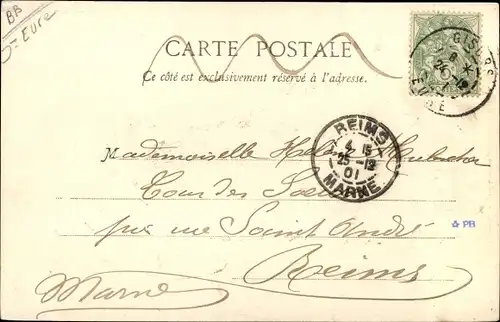 BB
Eure
CARTE POSTALE
Ce côté est exclusivement réservé à l'adresse.
GISORS
EURE
REIMS
4 15
25-12
01
MARNE
Mademoiselle
Cour des
rue Saint André
☆ PB
Reims
Marne